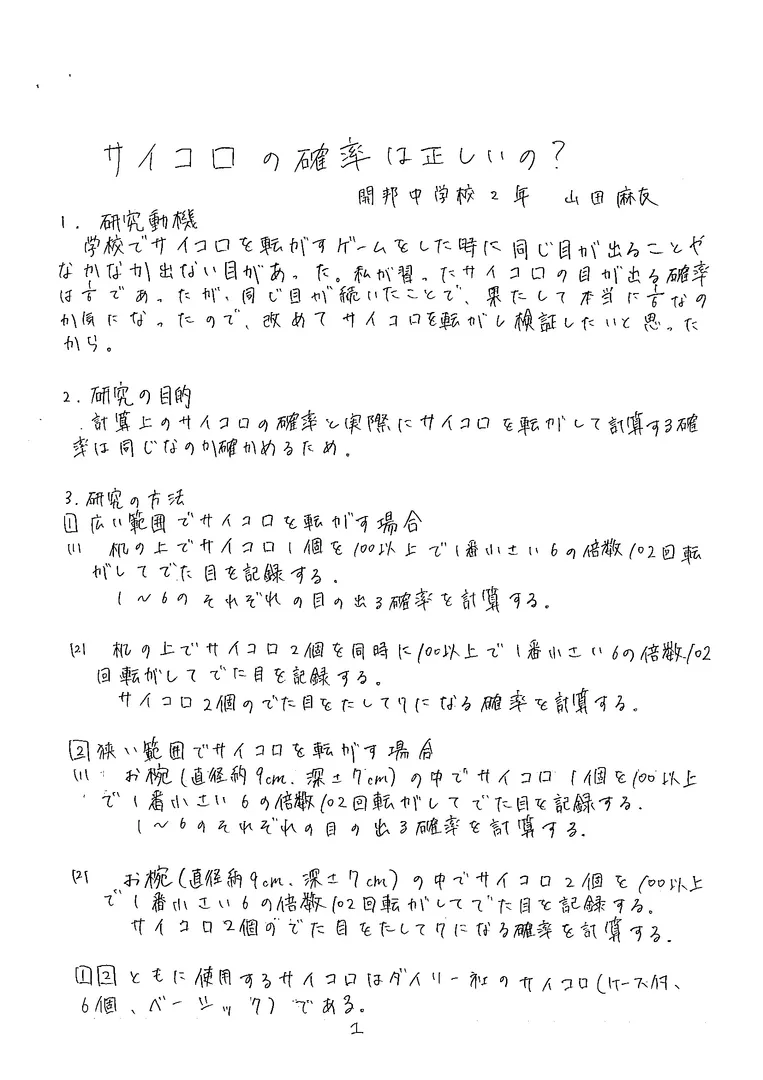 サイコロの確率は正しいの？
開邦中学校2年 山田麻友
1. 研究動機
学校でサイコロを転がすゲームをした時に同じ目が出ることや
なかなか出ない目があった。私が習ったサイコロの目が出る確率
は1/6であったが、同じ目が続いたことで、果たして本当に1/6なの
か気になったので、改めてサイコロを転がし検証したいと思った
から。
2. 研究の目的
計算上のサイコロの確率と実際にサイコロを転がして計算する確
率は同じなのか確かめるため。
3. 研究の方法
1 広い範囲でサイコロを転がす場合
(1) 机の上でサイコロ1個を100以上で1番小さい6の倍数102回転
がしてでた目を記録する。
1~6のそれぞれの目の出る確率を計算する。
(2) 机の上でサイコロ2個を同時に100以上で1番小さい6の倍数102
回転がしてでた目を記録する。
サイコロ2個のでた目をたして7になる確率を計算する。
2 狭い範囲でサイコロを転がす場合
(1) お椀(直径約9cm、深さ7cm)の中でサイコロ1個を100以上
で1番小さい6の倍数102回転がしてでた目を記録する。
1~6のそれぞれの目の出る確率を計算する。
(2) お椀(直径約9cm、深さ7cm)の中でサイコロ2個を100以上
で1番小さい6の倍数102回転がしてでた目を記録する。
サイコロ2個のでた目をたして7になる確率を計算する。
1 2 ともに使用するサイコロはダイリー社のサイコロ(ケース付、
6個、ベーシック)である。
1